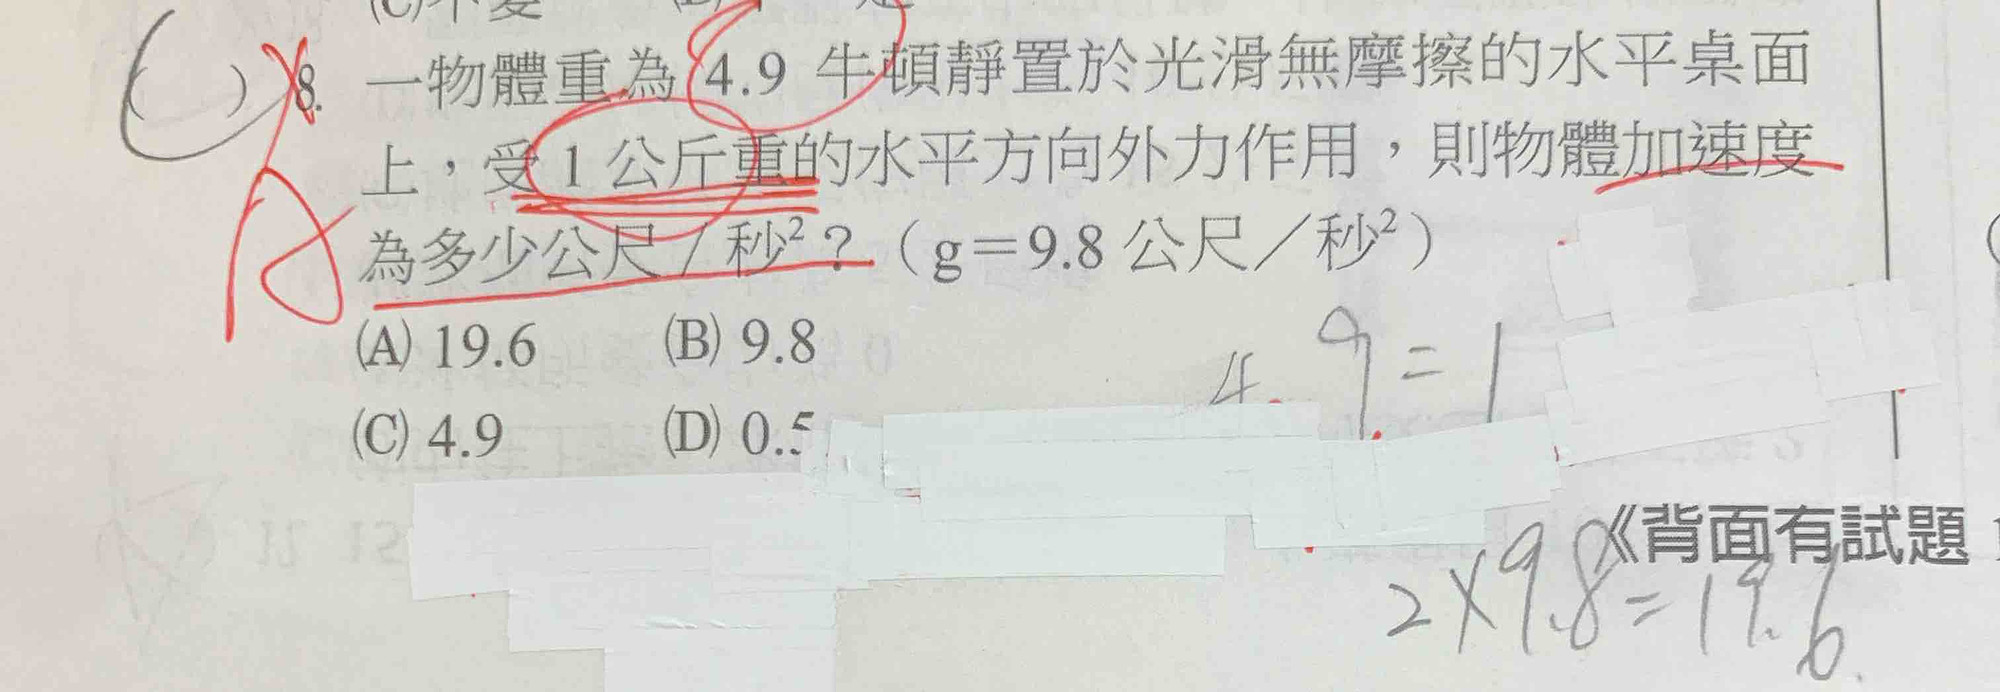 8. 一物體重為 4.9 牛頓靜置於光滑無摩擦的水平桌面
上，受 1 公斤重的水平方向外力作用，則物體加速度
為多少公尺／秒²？（g＝9.8 公尺／秒²）
A
(A) 19.6 (B) 9.8
4.9=1
(C) 4.9 (D) 0.5
《背面有試題
2×9.8=19.6